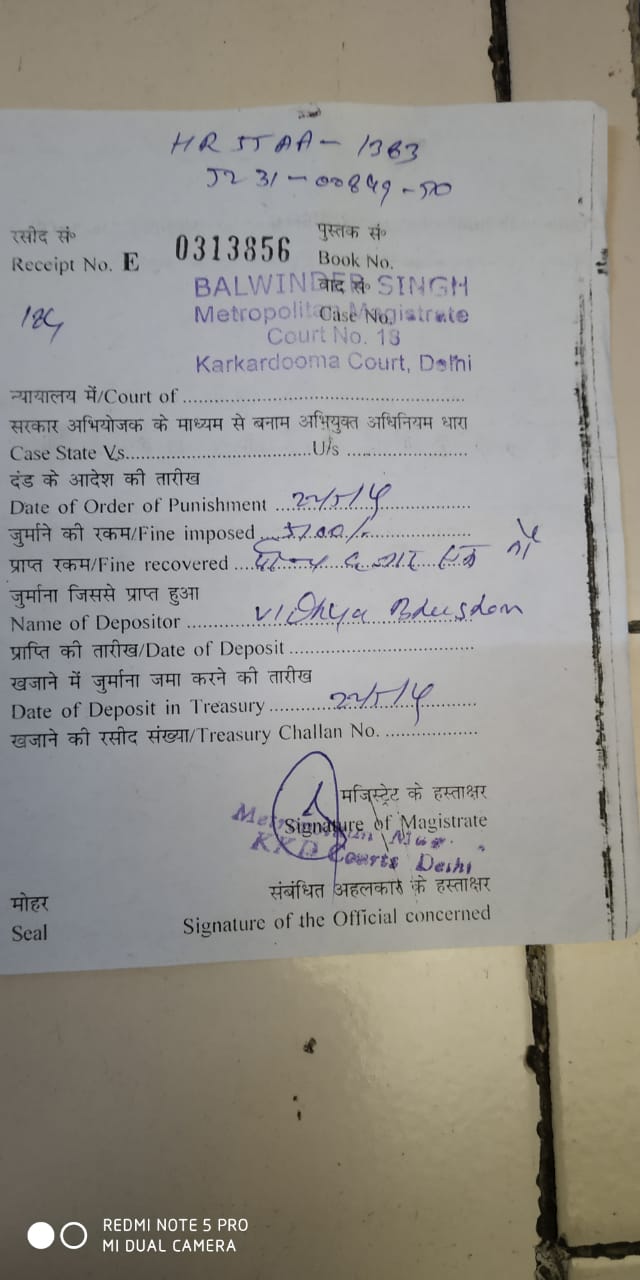 HR 55AA - 1383
5231-00849-50
रसीद सं॰ पुस्तक सं॰
Receipt No. E 0313856 Book No.
वाद सं॰
Case No.
BALWINDER SINGH
Metropolitan Magistrate
Court No. 18
Karkardooma Court, Delhi
184
न्यायालय में/Court of
सरकार अभियोजक के माध्यम से बनाम अभियुक्त अधिनियम धारा
Case State Vs. U/s
दंड के आदेश की तारीख
Date of Order of Punishment 22/5/14
जुर्माने की रकम/Fine imposed
प्राप्त रकम/Fine recovered
जुर्माना जिससे प्राप्त हुआ
Name of Depositor Vidhya Bhushan
प्राप्ति की तारीख/Date of Deposit
खजाने में जुर्माना जमा करने की तारीख
Date of Deposit in Treasury 22/5/14
खजाने की रसीद संख्या/Treasury Challan No.
मजिस्ट्रेट के हस्ताक्षर
Signature of Magistrate
KKD Courts Delhi
संबंधित अहलकार के हस्ताक्षर
मोहर
Seal Signature of the Official concerned
REDMI NOTE 5 PRO
MI DUAL CAMERA